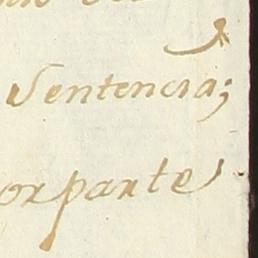 Sentencia;
or parte